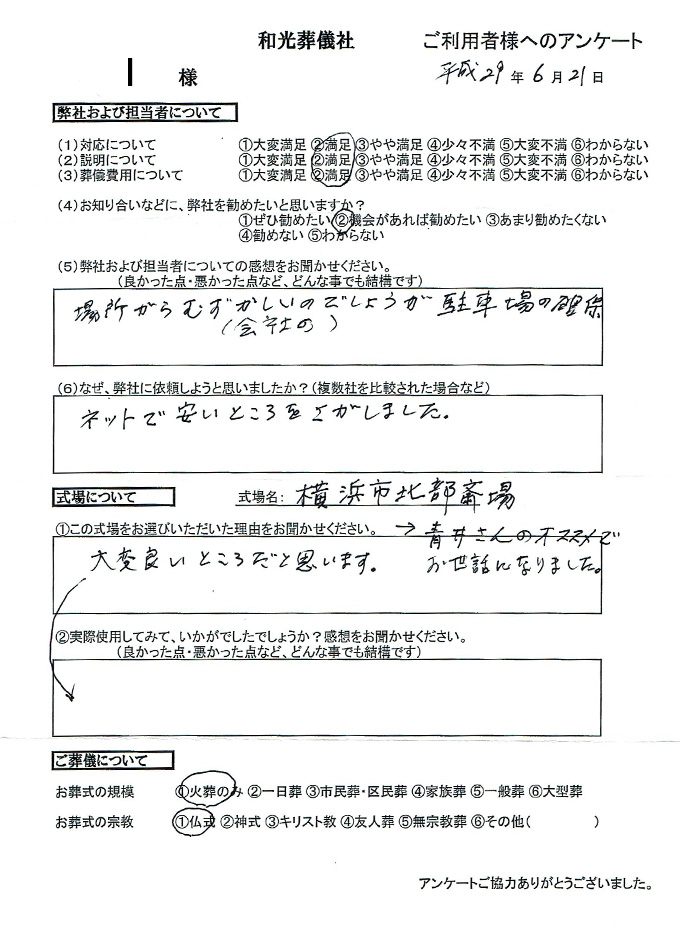 和光葬儀社 ご利用者様へのアンケート
I 様 平成29年6月21日
弊社および担当者について
(1)対応について ①大変満足 ②満足 ③やや満足 ④少々不満 ⑤大変不満 ⑥わからない
(2)説明について ①大変満足 ②満足 ③やや満足 ④少々不満 ⑤大変不満 ⑥わからない
(3)葬儀費用について ①大変満足 ②満足 ③やや満足 ④少々不満 ⑤大変不満 ⑥わからない
(4)お知り合いなどに、弊社を勧めたいと思いますか?
①ぜひ勧めたい ②機会があれば勧めたい ③あまり勧めたくない
④勧めない ⑤わからない
(5)弊社および担当者についての感想をお聞かせください。
(良かった点・悪かった点など、どんな事でも結構です)
場所がらむずかしいのでしょうが駐車場の確保
(会社の)
(6)なぜ、弊社に依頼しようと思いましたか?(複数社を比較された場合など)
ネットで安いところをさがしました。
式場について 式場名: 横浜市北部斎場
①この式場をお選びいただいた理由をお聞かせください。 → 青井さんのオススメで
大変良いところだと思います。 お世話になりました。
②実際使用してみて、いかがでしたでしょうか?感想をお聞かせください。
(良かった点・悪かった点など、どんな事でも結構です)
ご葬儀について
お葬式の規模 ①火葬のみ ②一日葬 ③市民葬・区民葬 ④家族葬 ⑤一般葬 ⑥大型葬
お葬式の宗教 ①仏式 ②神式 ③キリスト教 ④友人葬 ⑤無宗教葬 ⑥その他( )
アンケートご協力ありがとうございました。